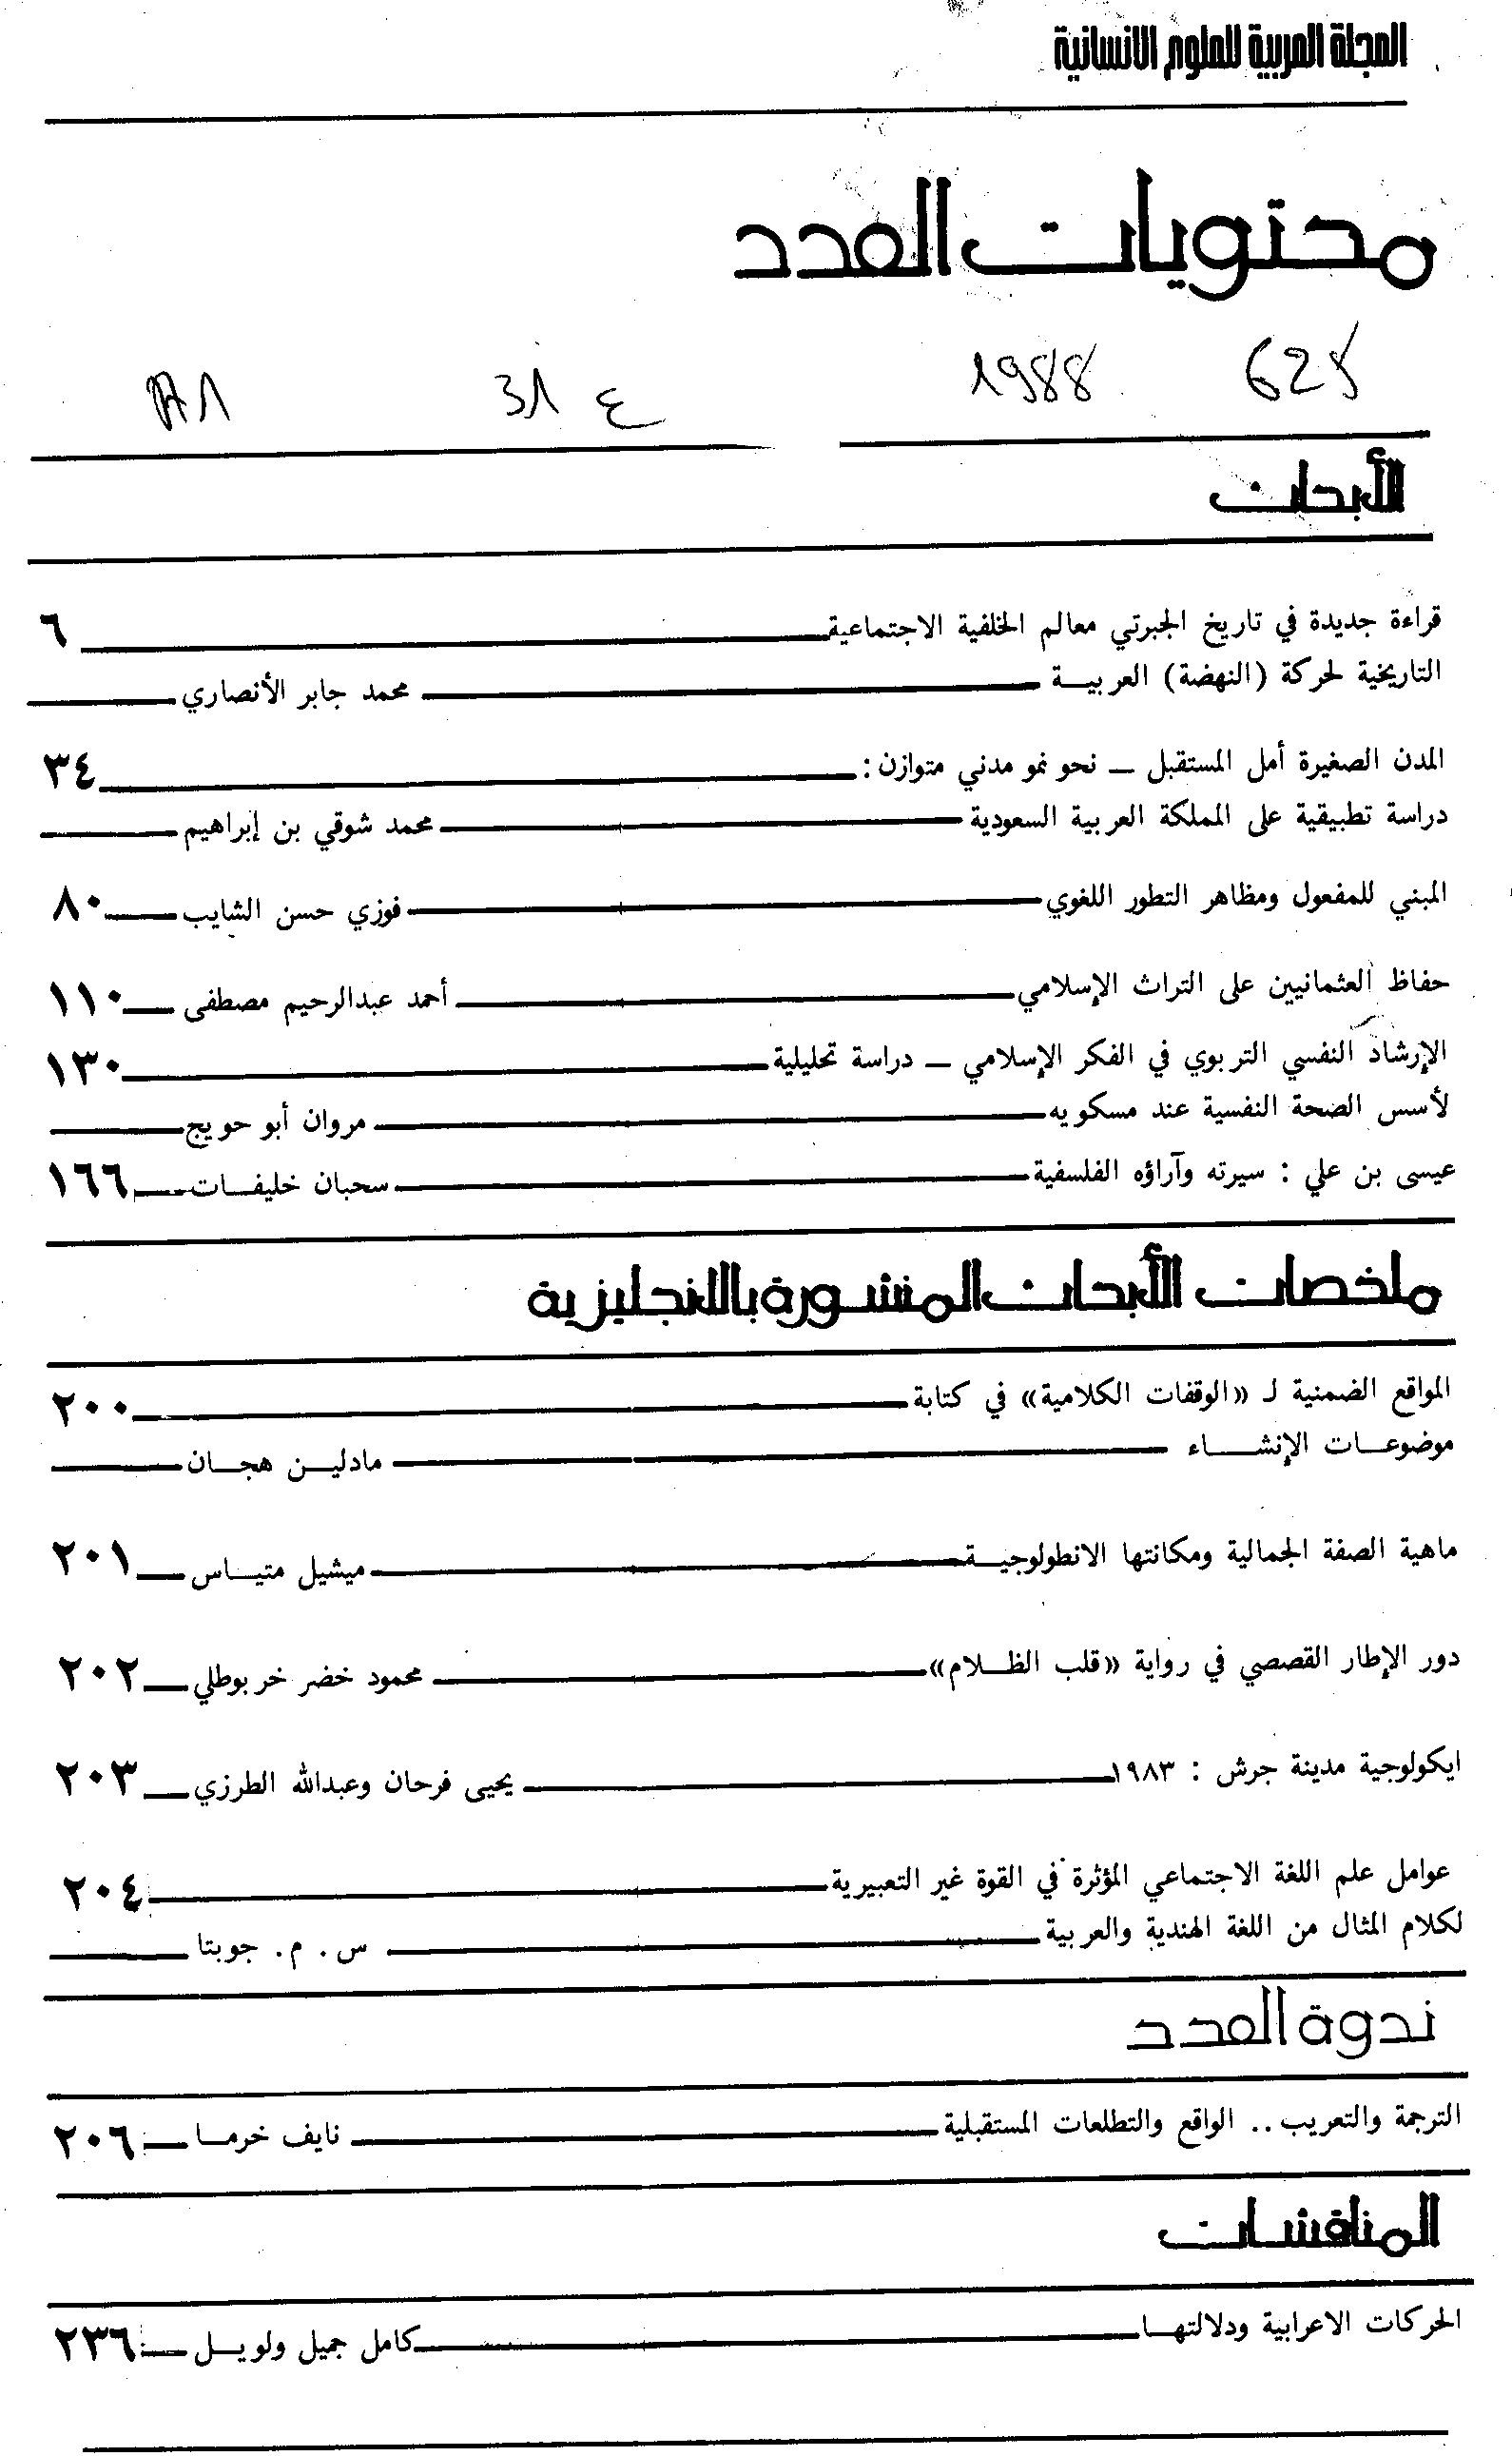 المجلة العربية للعلوم الانسانية
محتويات العدد
628 1988 ع 31
الأبحاث
قراءة جديدة في تاريخ الجبرتي معالم الخلفية الاجتماعية ٦
التاريخية لحركة (النهضة) العربيــة محمد جابر الأنصاري
المدن الصغيرة أمل المستقبل ــ نحو نمو مدني متوازن : ٣٤
دراسة تطبيقية على المملكة العربية السعودية محمد شوقي بن إبراهيم
المبني للمفعول ومظاهر التطور اللغوي فوزي حسن الشايب ٨٠
حفاظ العثمانيين على التراث الإسلامي أحمد عبدالرحيم مصطفى ١١٠
الإرشاد النفسي التربوي في الفكر الإسلامي ــ دراسة تحليلية ١٣٠
لأسس الصحة النفسية عند مسكويه مروان أبو حويج
عيسى بن علي : سيرته وآراؤه الفلسفية سحبان خليفــات ١٦٦
ملخصات الأبحاث المنشورة باللانجليزية
المواقع الضمنية لـ «الوقفات الكلامية» في كتابة ٢٠٠
موضوعــات الإنشــــاء مادليــن هجــان
ماهية الصفة الجمالية ومكانتها الانطولوجيــة ميشيل متيــاس ٢٠١
دور الإطار القصصي في رواية «قلب الظــلام» محمود خضر خربوطلي ٢٠٢
ايكولوجية مدينة جرش : ١٩٨٣ يحيى فرحان وعبدالله الطرزي ٢٠٣
عوامل علم اللغة الاجتماعي المؤثرة في القوة غير التعبيرية ٢٠٤
لكلام المثال من اللغة الهندية والعربية س . م . جوبتا
ندوة العدد
الترجمة والتعريب .. الواقع والتطلعات المستقبلية نايف خرمــا ٢٠٦
المناقشات
الحركات الاعرابية ودلالتهــا كامل جميل ولويــل ٢٣٦